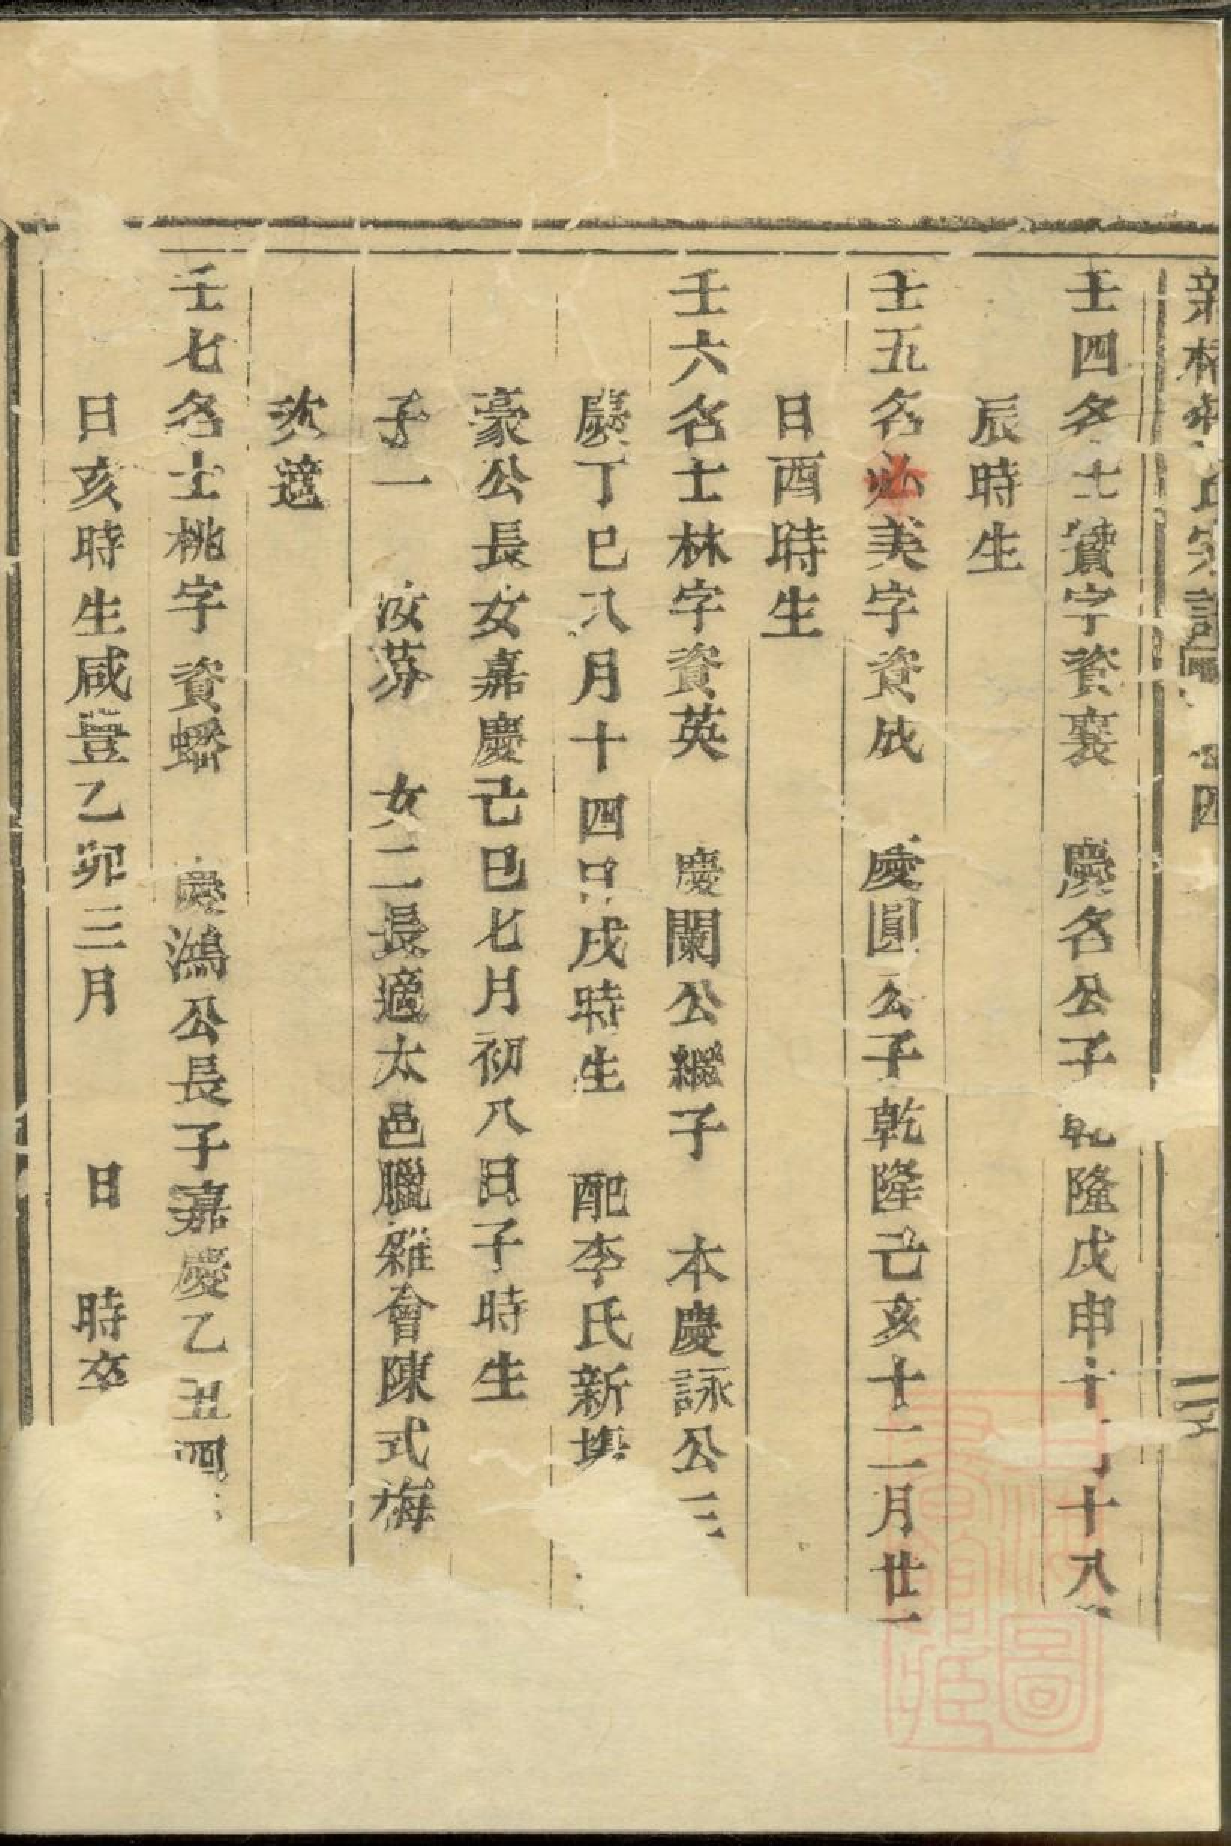 壬四名士贊字資襄　慶名公子乾隆戊申十月十八
辰時生
壬五名必美字資成　慶圓公子乾隆己亥十二月廿
日酉時生
壬六名士林字資英　慶闌公繼子　本慶詠公三
慶丁巳八月十四日戌時生　配李氏新塘
豪公長女嘉慶己巳七月初八日子時生
子一　汝芬　女二長適太邑臘雞會陳式梅
次適
壬七名士桃字資蟠　慶鴻公長子嘉慶乙丑四
日亥時生咸豐乙卯三月　日　時卒